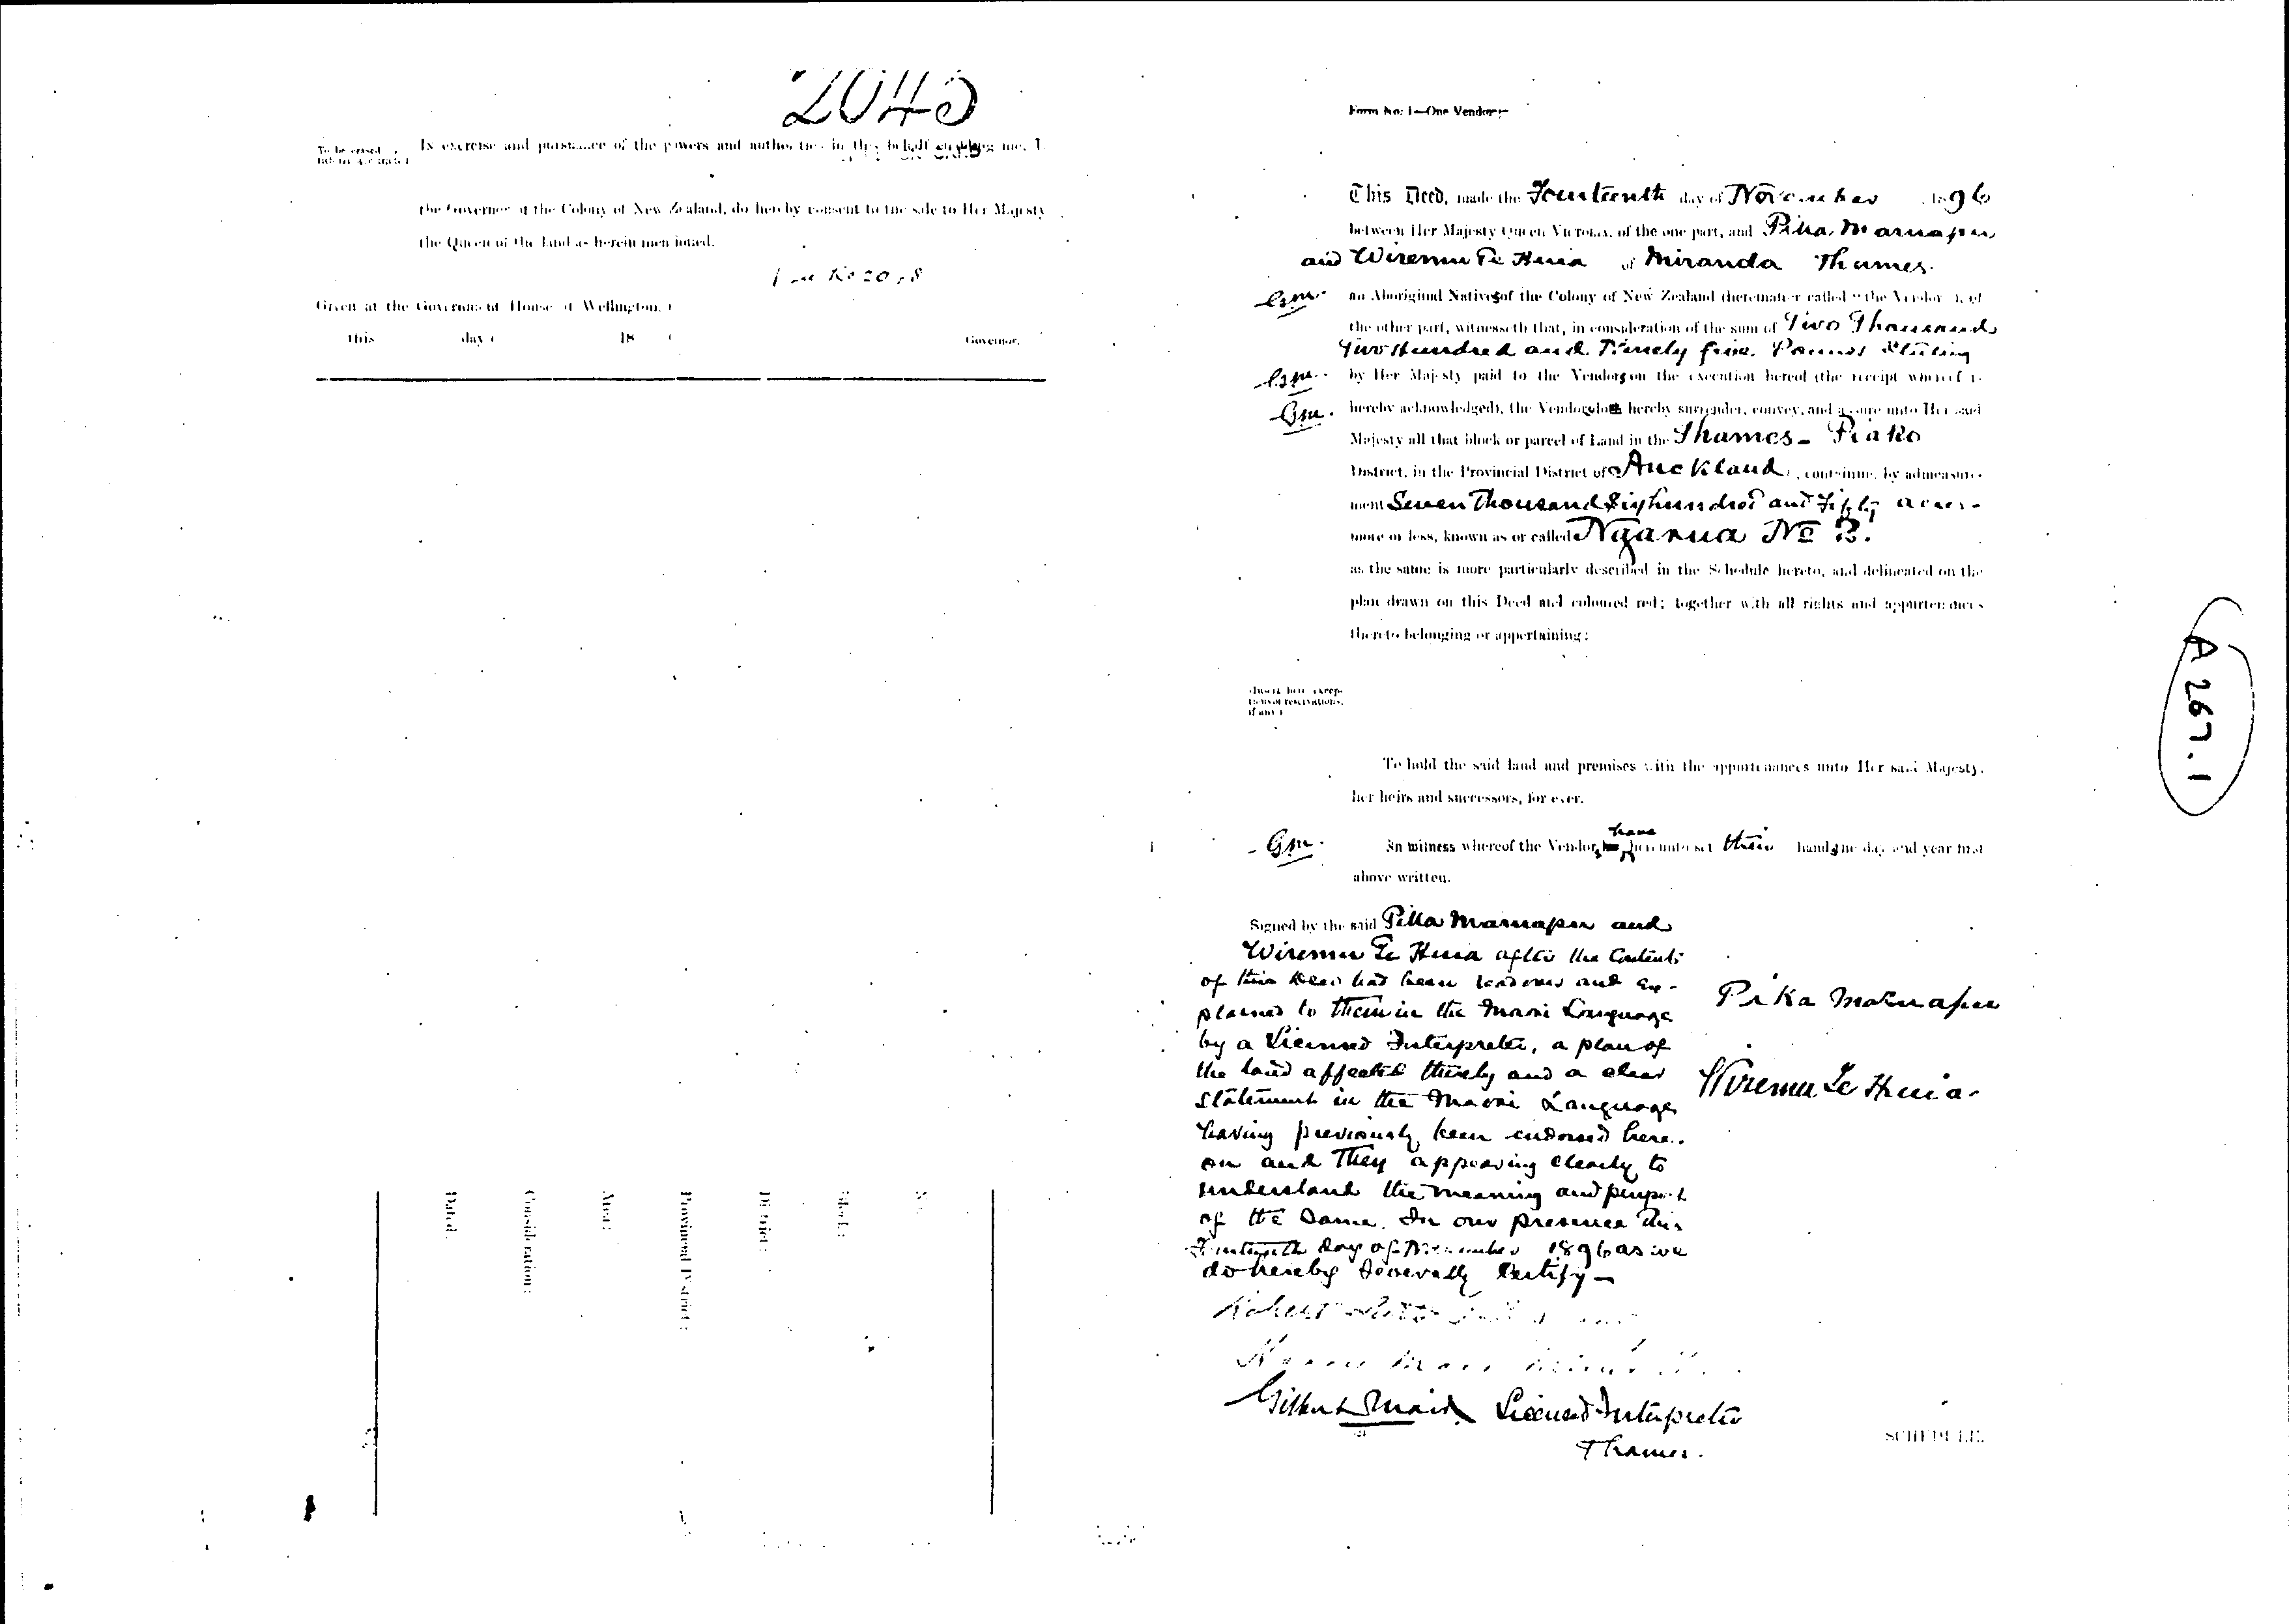 2045
In exercise and pursuance of the powers and authorities in this behalf enabling me, I,
the Governor of the Colony of New Zealand, do hereby consent to the sale to Her Majesty
the Queen of the land as herein mentioned.
Given at the Government House at Wellington,
this day 18 Governor.
No.
Block:
District:
Provincial District:
Area:
Consideration:
Dated
Form No. 1—One Vendor.
This Deed, made the Fourteenth day of November 1896
between Her Majesty Queen Victoria, of the one part, and Pika Maruapu
and Wiremu Te Huia of Miranda Thames.
Gm. an Aboriginal Natives of the Colony of New Zealand (hereinafter called "the Vendor"), of
the other part, witnesseth that, in consideration of the sum of Two Thousand
Two Hundred and Ninety five Pounds Sterling
Gm. by Her Majesty paid to the Vendors on the execution hereof (the receipt whereof is
Gm. hereby acknowledged), the Vendors do hereby surrender, convey, and assure unto Her said
Majesty all that block or parcel of Land in the Thames - Piako
District, in the Provincial District of Auckland, containing by admeasure-
ment Seven Thousand Six hundred and Fifty acres -
more or less, known as or called Ngarua No
as the same is more particularly described in the Schedule hereto, and delineated on the
plan drawn on this Deed and coloured red; together with all rights and appurtenances
thereto belonging or appertaining:
(Insert here excep-
tions or reservations,
if any.)
To hold the said land and premises with the appurtenances unto Her said Majesty,
her heirs and successors, for ever.
have
Gm. In witness whereof the Vendors hereunto set their hands the day and year first
above written.
Signed by the said Pika Maruapu and
Wiremu Te Huia after the Contents
of this Deed had been read over and ex-
plained to them in the Maori Language
by a Licensed Interpreter, a plan of
the land affected thereby and a clear
Statement in the Maori Language
having previously been endorsed here-
on and They appearing clearly to
understand the meaning and purport
of the Same. In our presence this
Fourteenth day of November 1896 as we
do hereby severally Certify -
Pika Maruapu
Wiremu Te Huia.
Robert
Gilbert Mair Licensed Interpreter
Thames.
SCHEDULE.
A 267.1